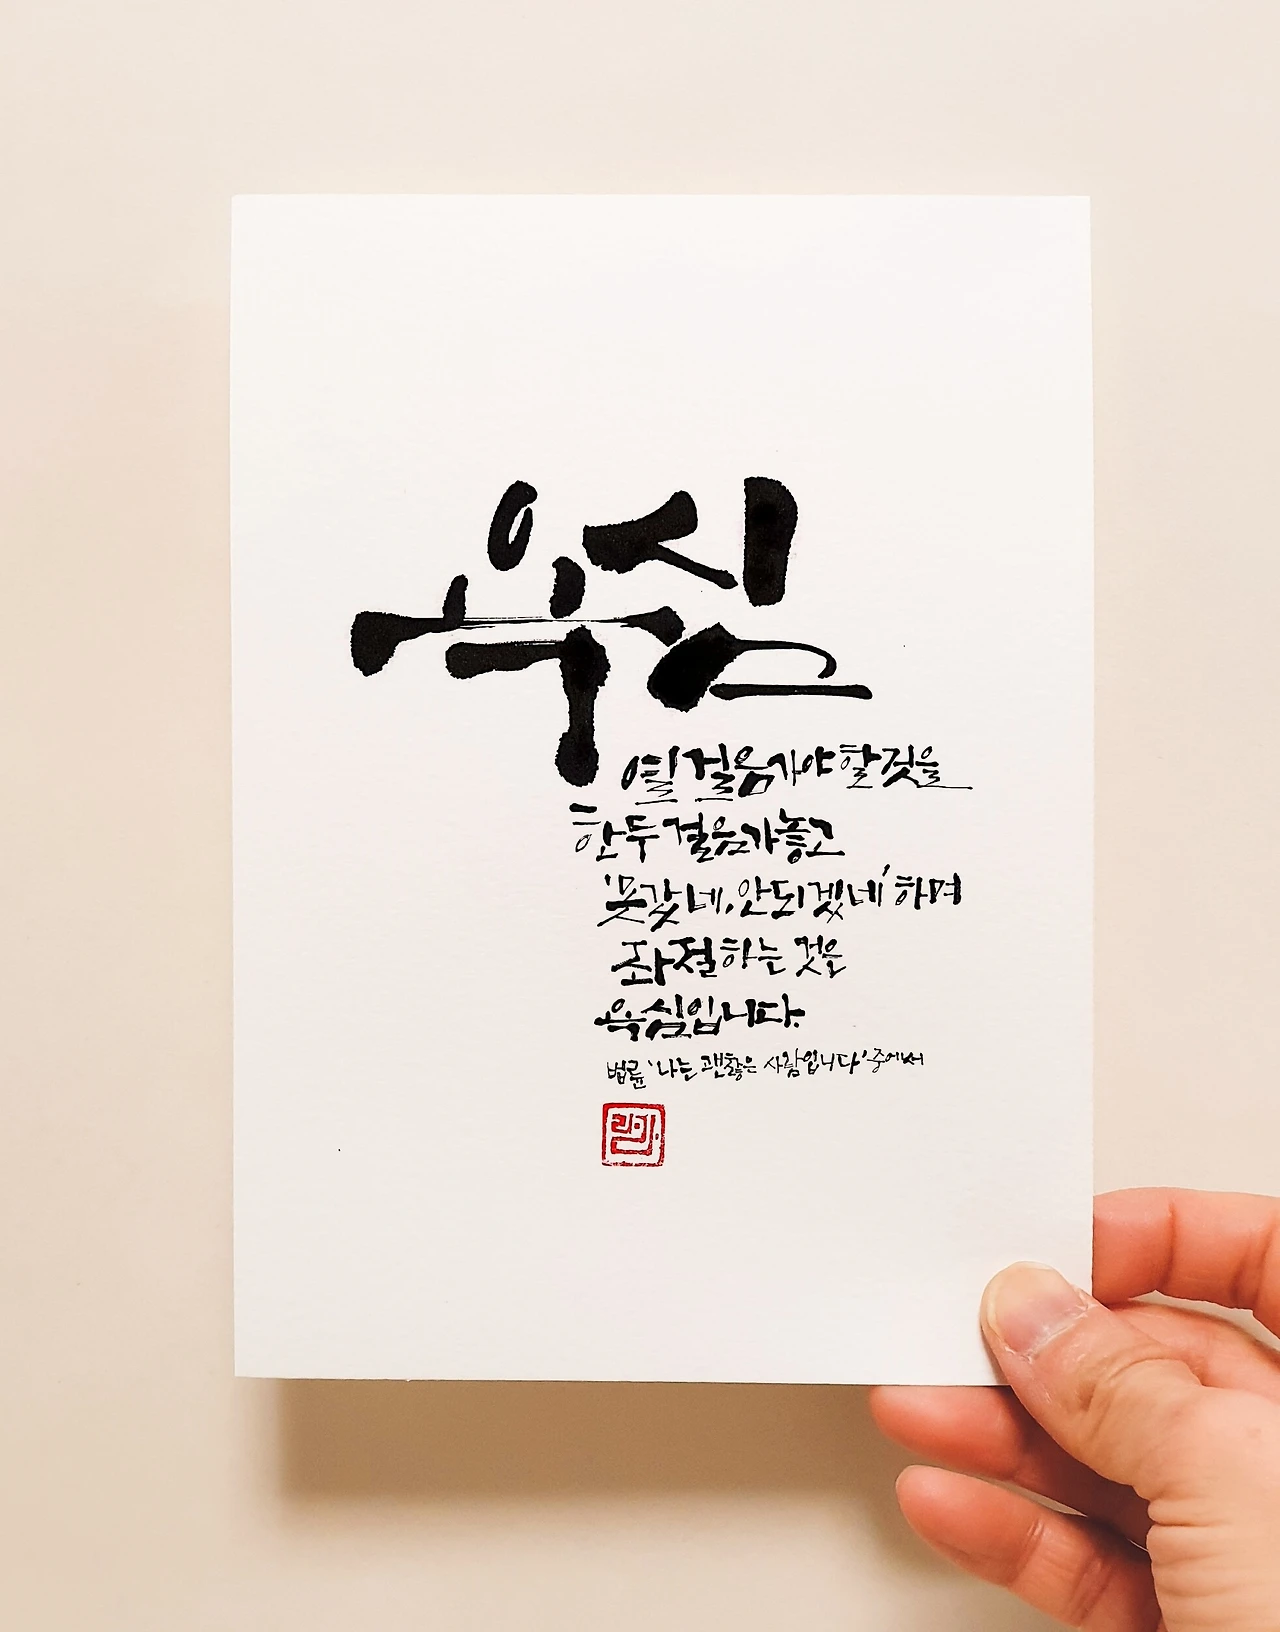 욕심
열 걸음 가야 할 것을
한두 걸음 가 놓고
'못 갔네, 안 되겠네' 하며
좌절하는 것을
욕심입니다.
법륜 '나는 괜찮은 사람입니다' 중에서